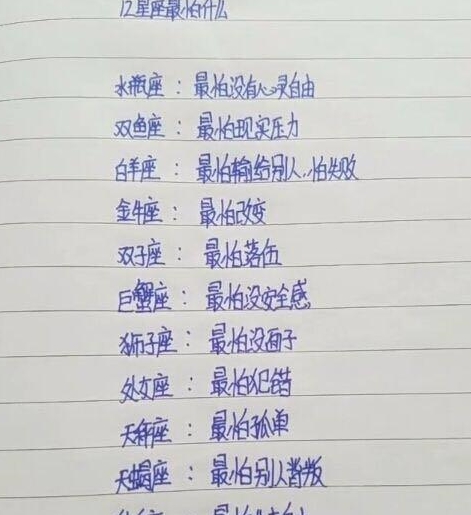 12星座最怕什么
水瓶座：最怕没有心灵自由
双鱼座：最怕现实压力
白羊座：最怕输给别人，怕失败
金牛座：最怕改变
双子座：最怕落伍
巨蟹座：最怕没安全感
狮子座：最怕没面子
处女座：最怕犯错
天秤座：最怕孤单
天蝎座：最怕别人背叛